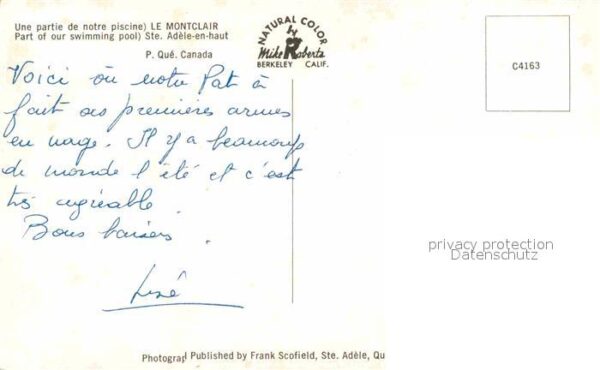 Une partie de notre piscine) LE MONTCLAIR
Part of our swimming pool) Ste. Adèle-en-haut
P. Qué. Canada
NATURAL COLOR
by
Mike Roberts
BERKELEY CALIF.
C4163
Voici où notre Pat à
fait ses premières armes
en nage. Il y a beaucoup
de monde l'été et c'est
très agréable.
Bons baisers.
privacy protection
Datenschutz
Photograp Published by Frank Scofield, Ste. Adèle, Qu